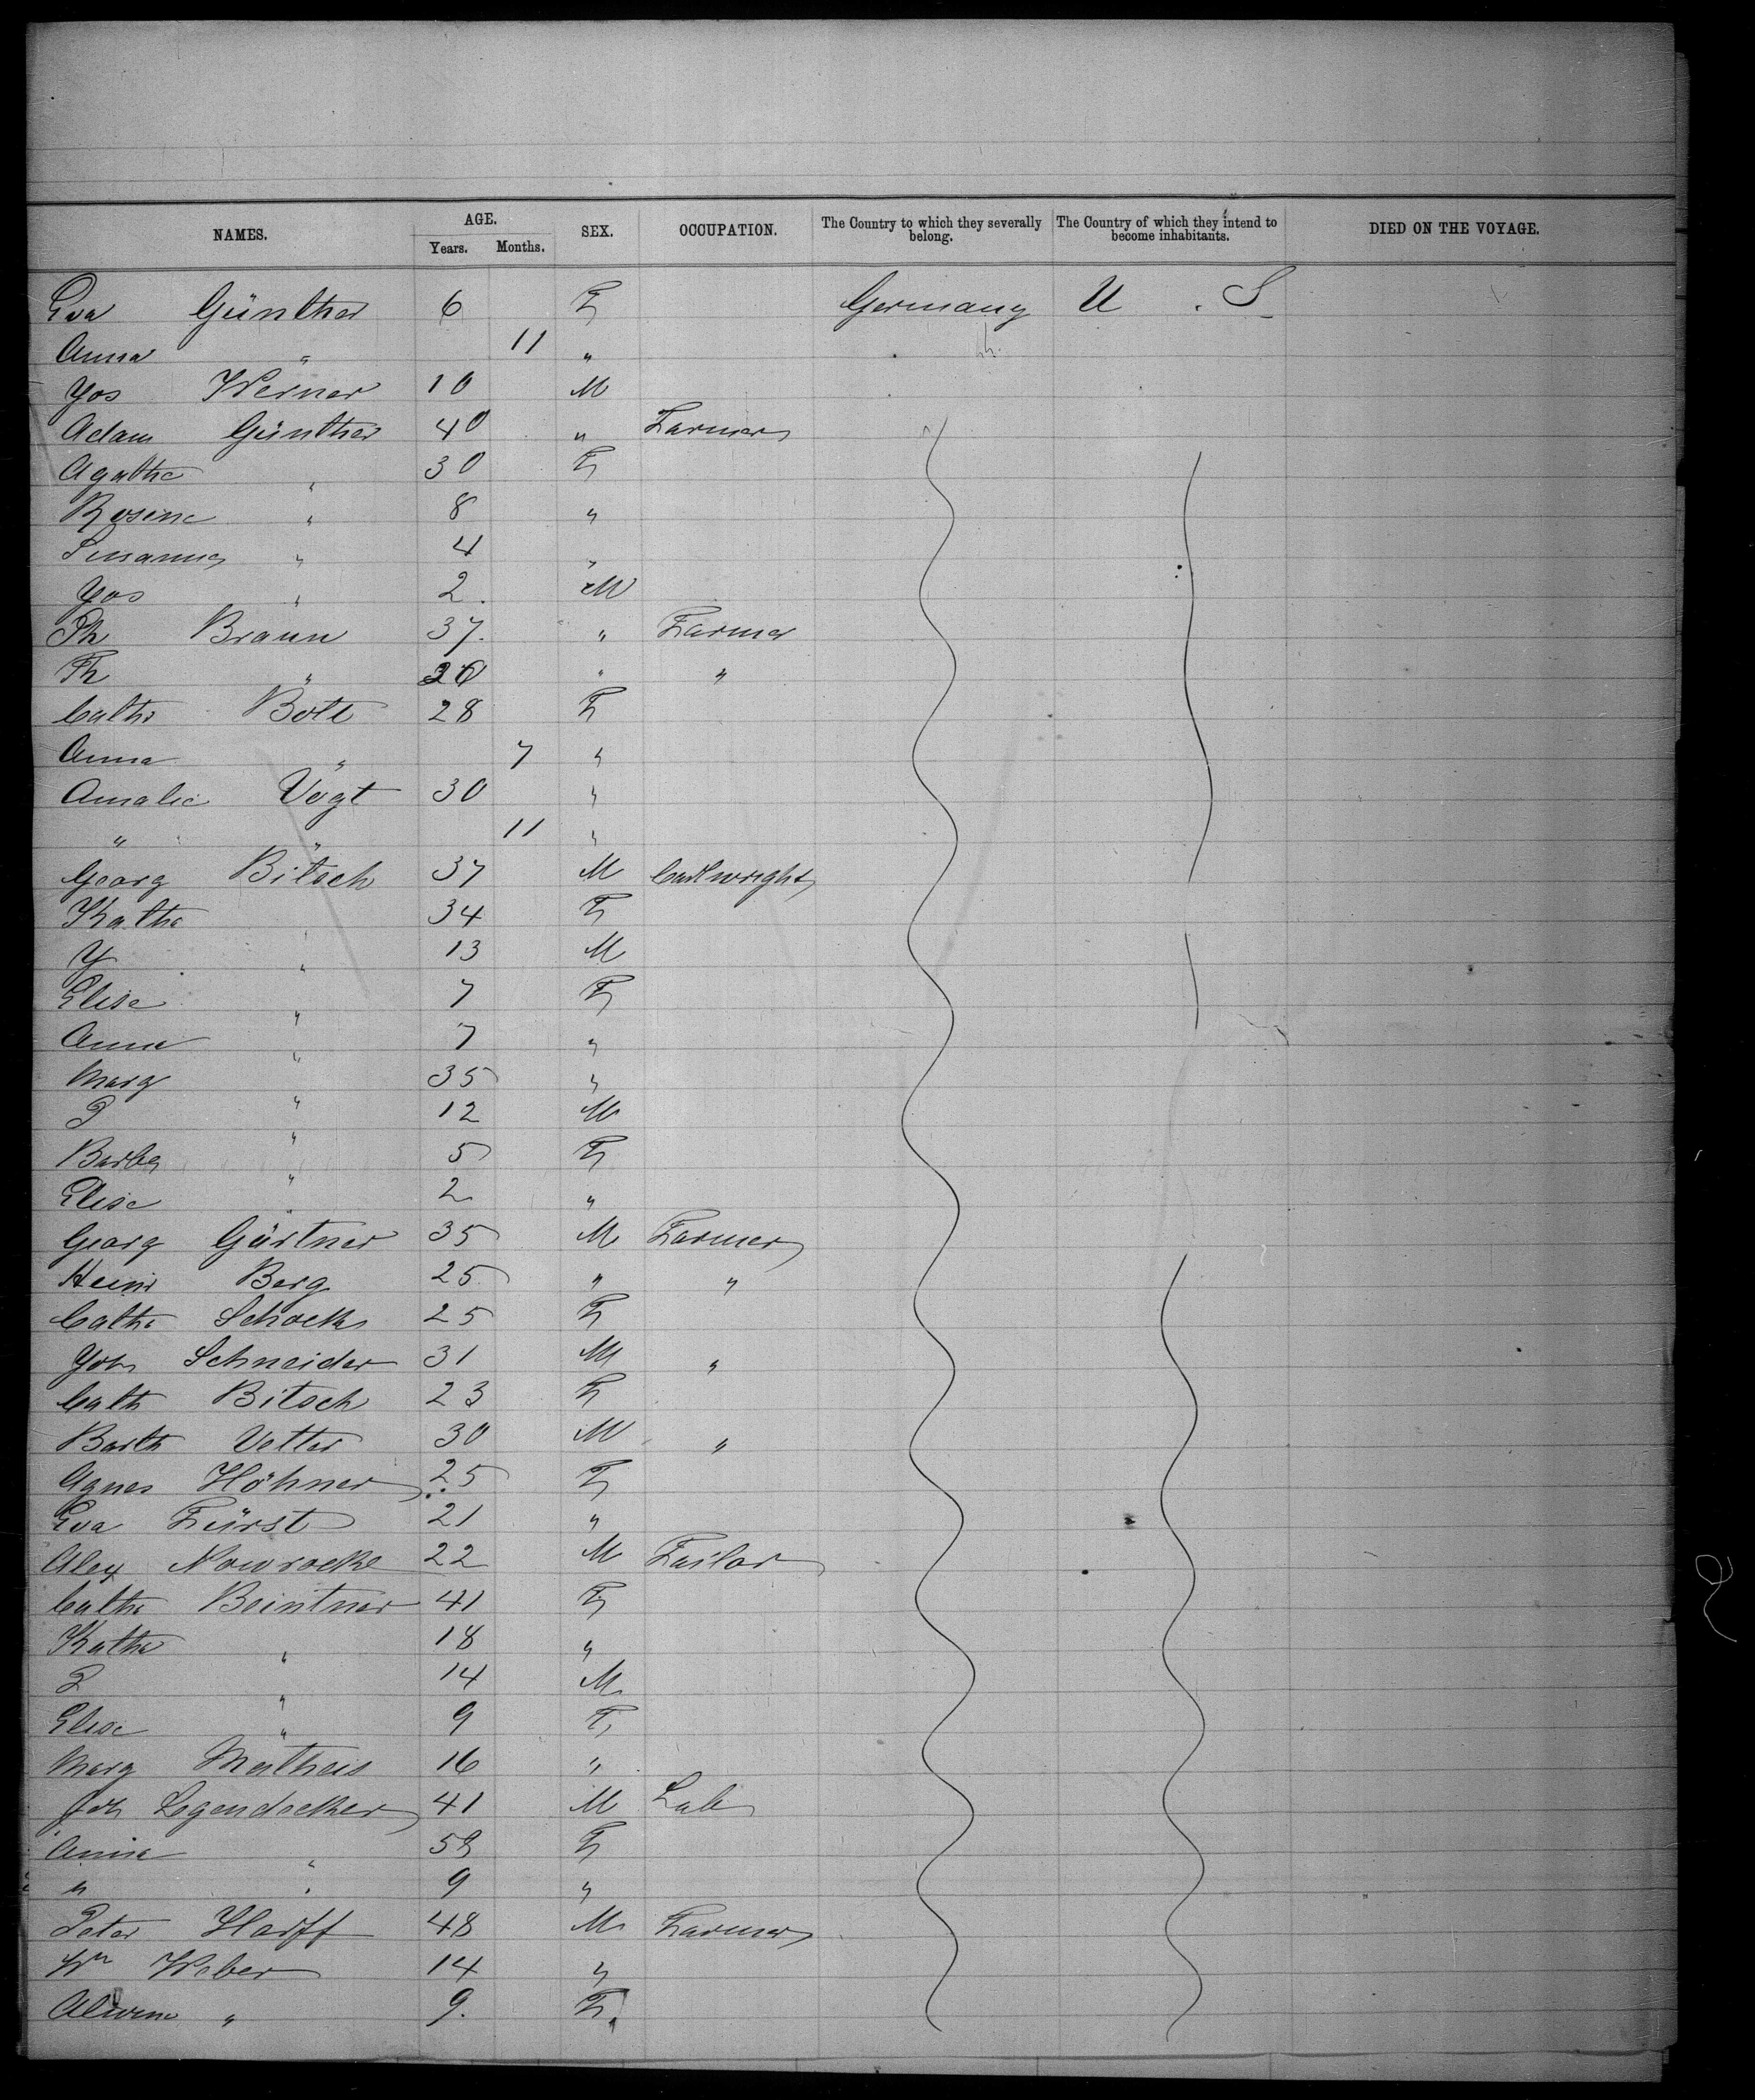 NAMES. AGE. SEX. OCCUPATION. The Country to which they severally belong. The Country of which they intend to become inhabitants. DIED ON THE VOYAGE.
Years. Months.
Eva Günther 6 F Germany U. S.
Anna " 11 "
Jos Werner 10 M
Adam Günther 40 " Farmer
Agathe " 30 F
Rosine " 8 "
Susanna " 4 "
Jos " 2. M
Ph Braun 37. " Farmer
Fh " " "
Cathr Bott 28 F
Anna " 7 "
Amalie Vogt 30 "
" " 11 "
Georg Bitsch 37 M Cartwright
Kathe " 34 F
J " 13 M
Elise " 7 F
Anna " 7 "
Marg " 35 "
P " 12 M
Barba " 5 F
Elise " 2 "
Georg Gärtner 35 M Farmer
Heinr Berg 25 " "
Cathe Schock 25 F
Joh Schneider 31 M "
Cath Bitsch 23 F
Barth Vetter 30 M "
Agnes Höhner 25 F
Eva Fürst 21 "
Alex Nowrocke 22 M Tailor
Cathe Beintner 41 F
Kathe " 18 "
P " 14 M
Elise " 9 F
Marg Matheis 16 "
Joh Legendecker 41 M Lab
Anna " F
" " 9 "
Peter Harff 48 M Farmer
Wm Weber 14 "
Alwine " 9. F